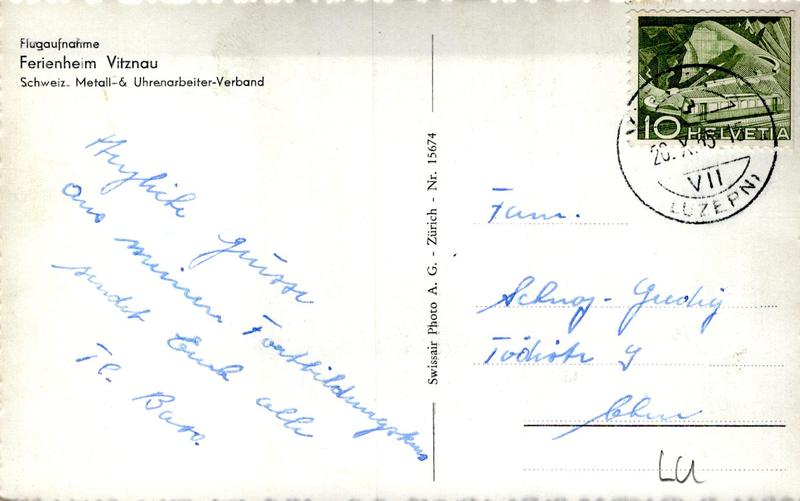 Flugaufnahme
Ferienheim Vitznau
Schweiz. Metall- & Uhrenarbeiter-Verband
Herzliche Grüsse
aus meinem Fortbildungskurs
sendet Euch alle
Swissair Photo A. G. - Zürich - Nr. 15674
10 HELVETIA
20. X.
VII
LUZERN
Fam.
Schnoz - Gredig
Tödistr 9
Chur
LU